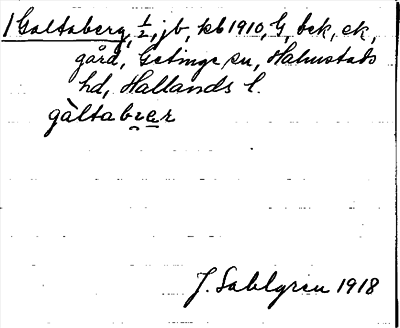 1 Galtaberg, 1/2, jb, kb 1910, G, bek, ek,
gård, Getinge sn, Halmstads
hd, Hallands l.
gàltabær
J. Sahlgren 1918